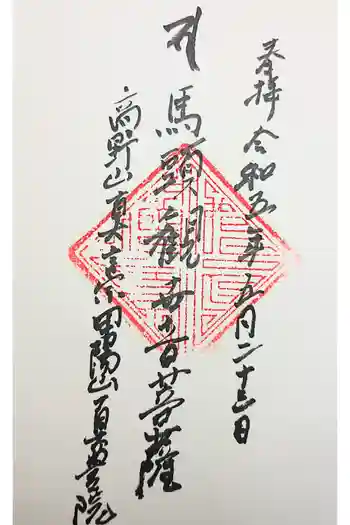 奉拝 令和五年五月二十三日
馬頭観世音菩薩
高野山真言宗 男陽山 百蔵院